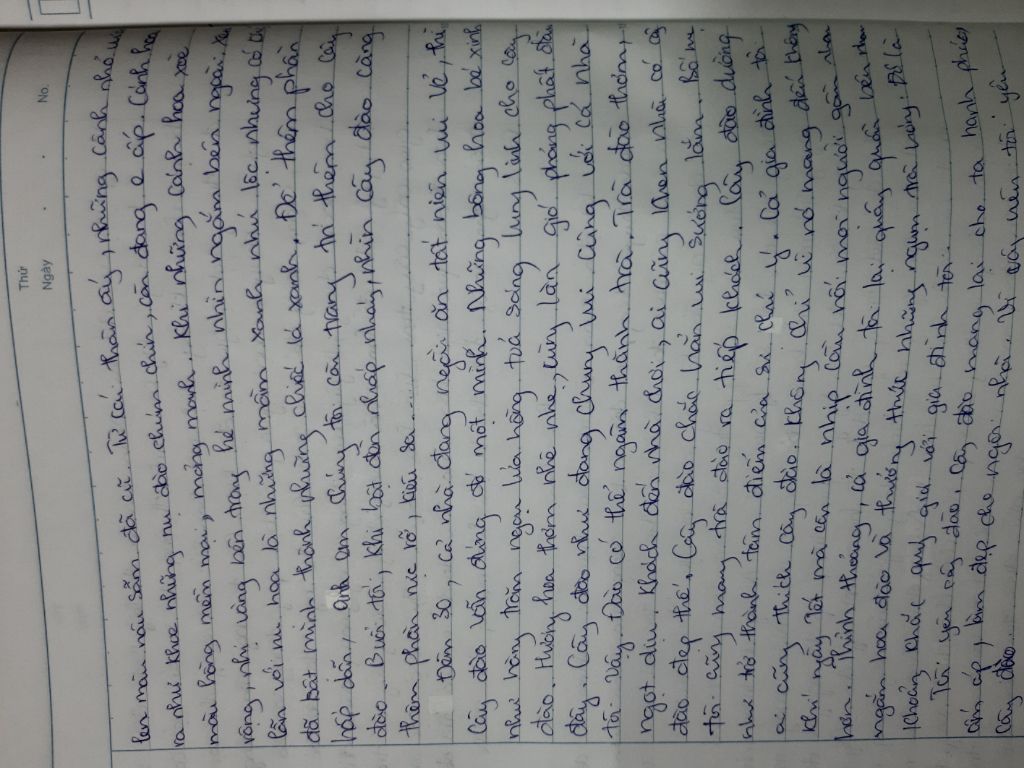 Thứ
Ngày
No.
len màu nâu sẫm đã cũ. Từ cái thân ấy, những cành nhỏ
ra như khoe những nụ đào chúm chím, còn đang e ấp. Cánh hoa
màu hồng mềm mại, mỏng manh. Khi những cánh hoa xòe
rộng, nhị vàng bên trong hé mình nhìn ngắm bên ngoài.
Bên với nụ hoa là những mầm xanh nhú lộc nhưng có
đã bật mình thành những chiếc lá xanh. Để thêm phần
hấp dẫn, anh em chúng tôi còn trang trí thêm cho cây
đào. Buổi tối, khi bật đèn nháy, nhìn cây đào càng
thêm phần rực rỡ, kiêu sa.
Đêm 30, cả nhà đang ngồi ăn tất niên vui vẻ, thì
cây đào vẫn đứng đó một mình. Những bông hoa bé xinh
như hòn trân ngọc lúa hồng toả sáng lung linh cho cây
đào. Hương hoa thơm nhè nhẹ, cùng làn gió phảng phất đâu
đây. Cây đào như đang chung vui cùng với cả nhà
tôi vậy. Đào có thể ngâm thành trà. Trà đào thơm,
ngọt dịu. Khách đến nhà chơi, ai cũng khen nhà có cây
đào đẹp thế. Cây đào chắc hẳn vui sướng lắm. Bố mẹ
tôi cũng mang trà đào ra tiếp khách. Cây đào dường
như trở thành tâm điểm của sự chú ý. Cả gia đình tôi
ai cũng thích cây đào. Không chỉ vì nó mang đến không
khí ngày Tết mà còn là nhịp cầu nối mọi người gần nhau
hơn. Thỉnh thoảng, cả gia đình tôi lại quây quần bên nhau
ngắm hoa đào và thưởng thức những ngụm trà nóng. Đó là
khoảng khắc quý giá với gia đình tôi.
Tôi yêu cây đào, cây đào mang lại cho ta hạnh phúc,
ấm áp, làm đẹp cho ngôi nhà. Vì vậy nên tôi yêu
cây đào.